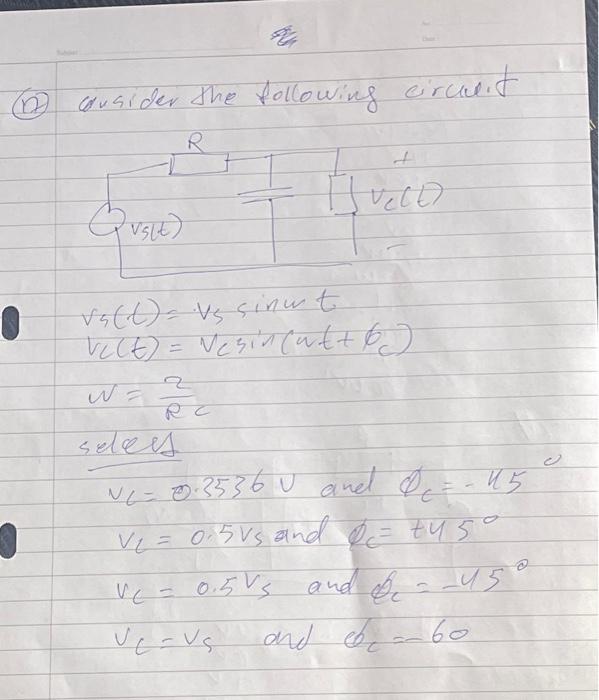 12 consider the following circuit
R
+
vs(t)
vc(t)
-
vs(t) = vs sinwt
Vc(t) = Vc sin(wt + ϕc)
w = 2/RC
select
vc = 0.3536 V and ϕc = -45°
Vc = 0.5Vs and ϕc = +45°
Vc = 0.5Vs and ϕc = -45°
Vc = Vs and ϕc = -60